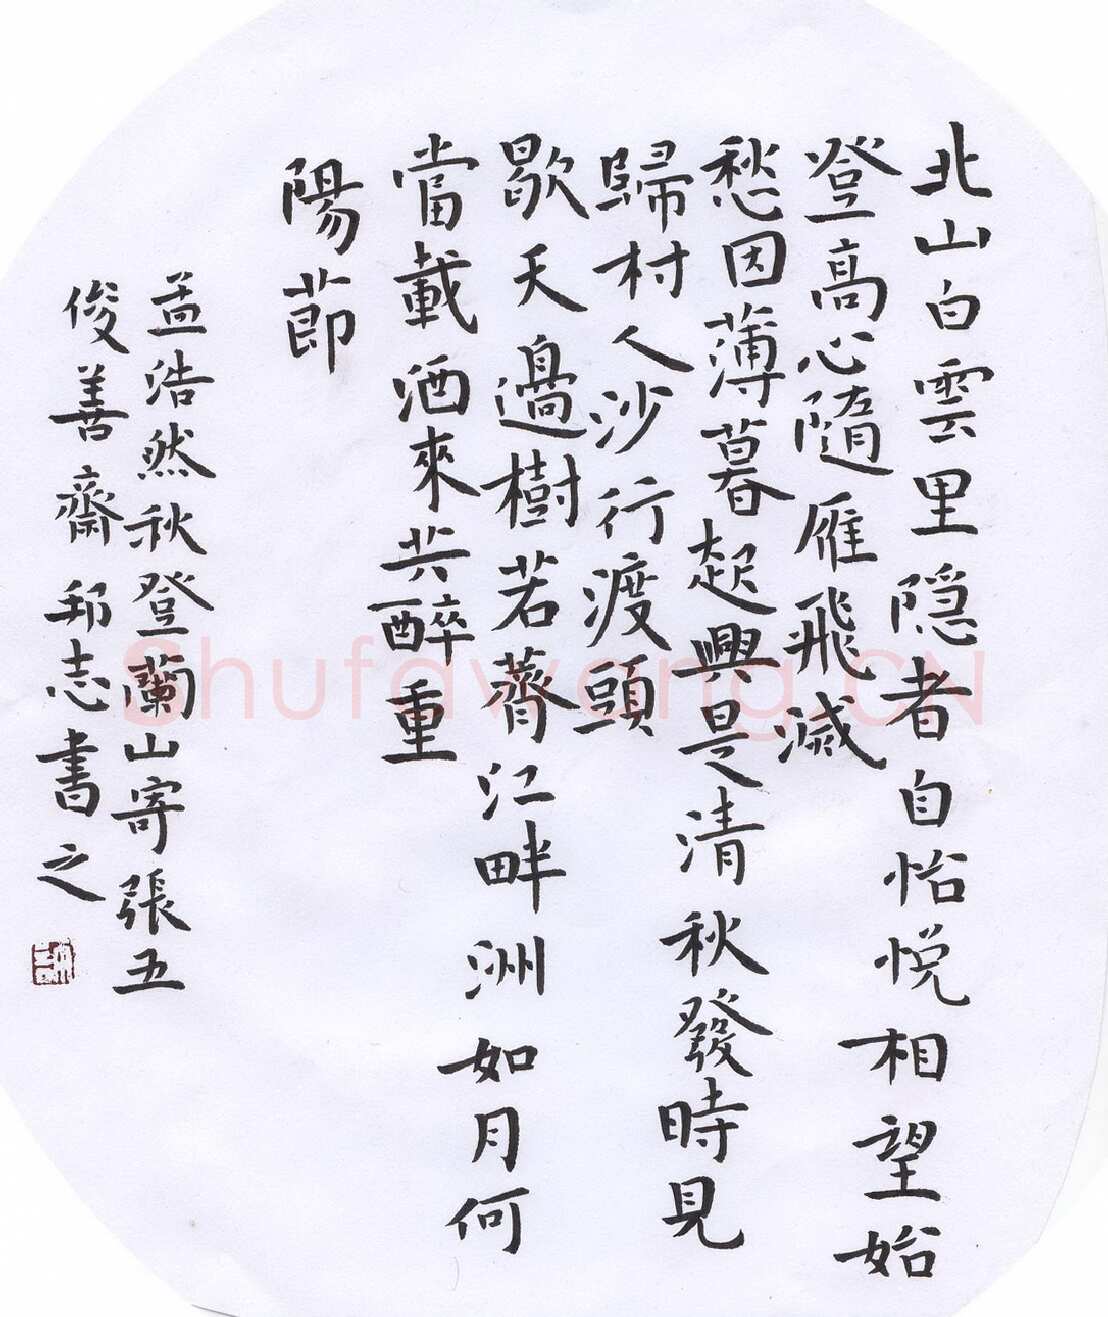 北山白雲里隐者自怡悦相望始
登高心隨雁飛滅
愁因薄暮起興是清秋發時見
歸村人沙行渡頭
歇天邊樹若薺江畔洲如月何
當載酒來共醉重
陽節
孟浩然秋登蘭山寄張五
俊善齋邦志書之
Shufawang.CN